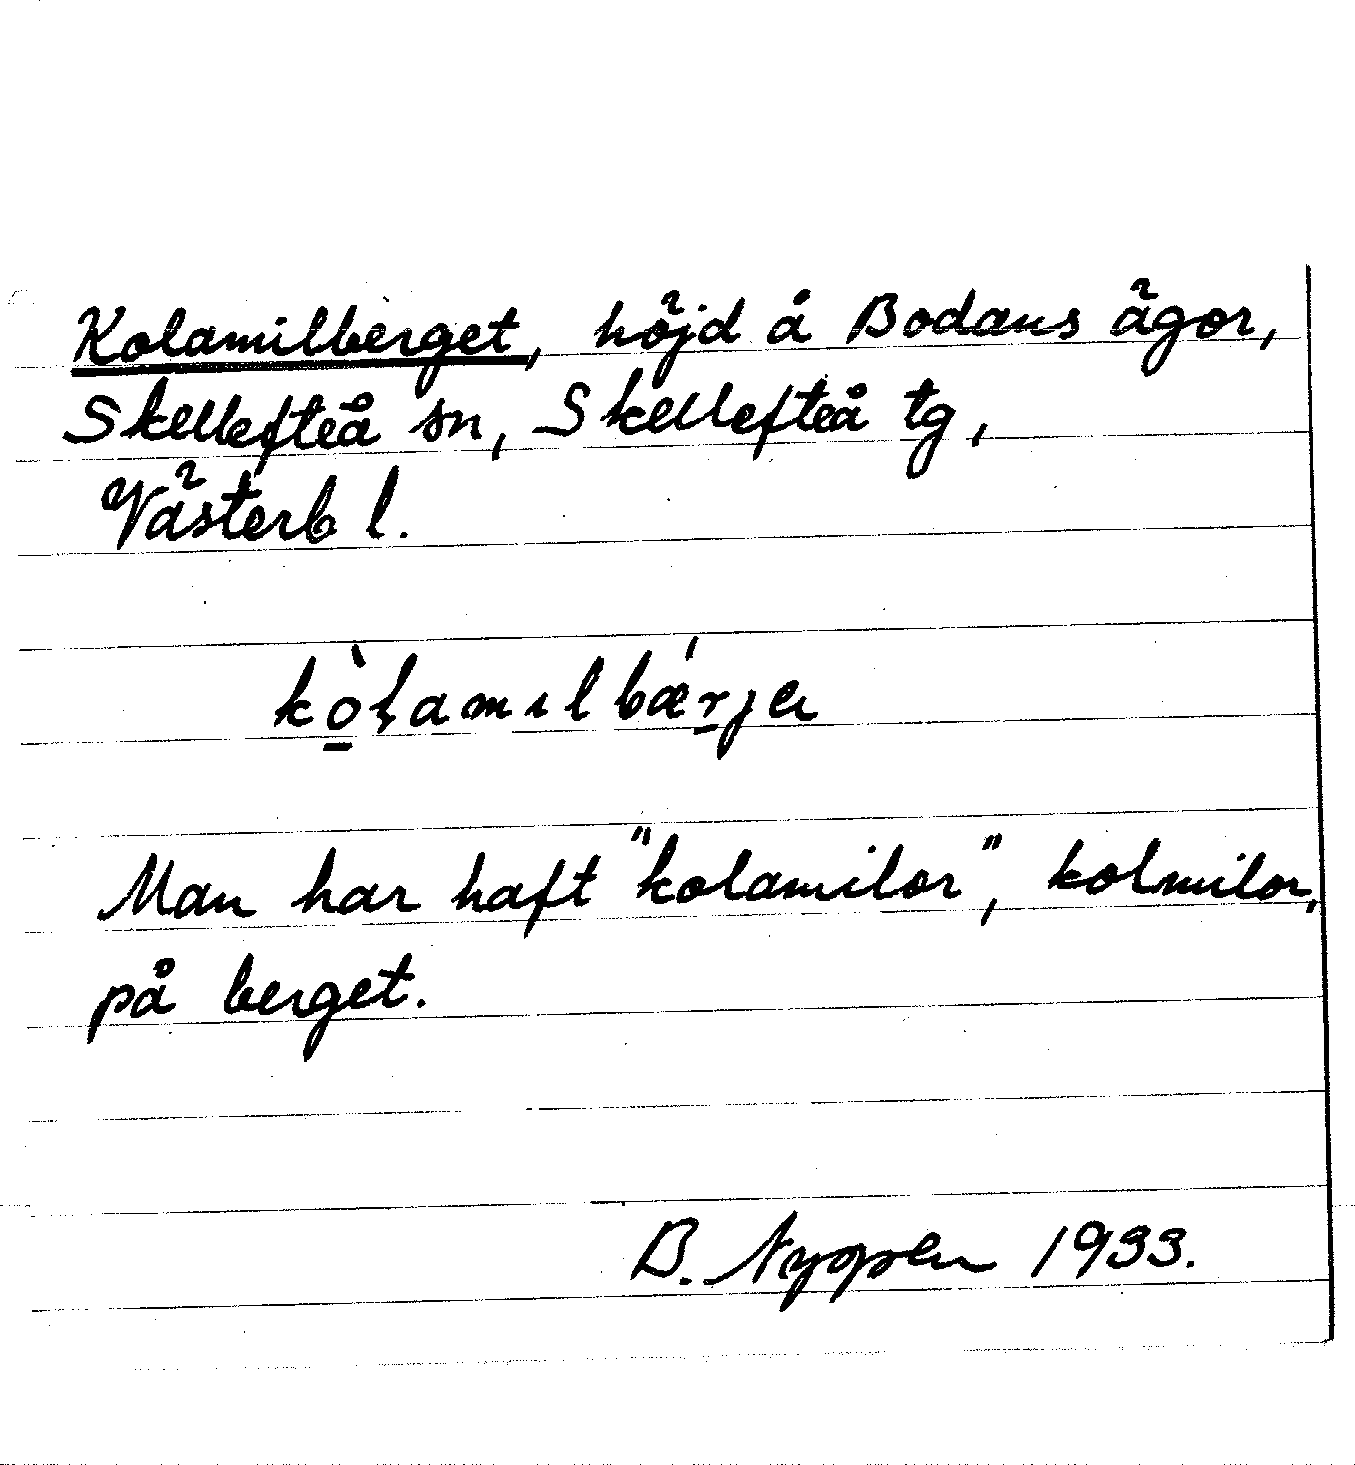 Kolamilberget, höjd å Bodans ägor,
Skellefteå sn, Skellefteå tg,
Västerb l.
kò̱ɭamɩlbǽr̠jɐ
Man har haft "kolamilor", kolmilor,
på berget.
B. Nyppen 1933.